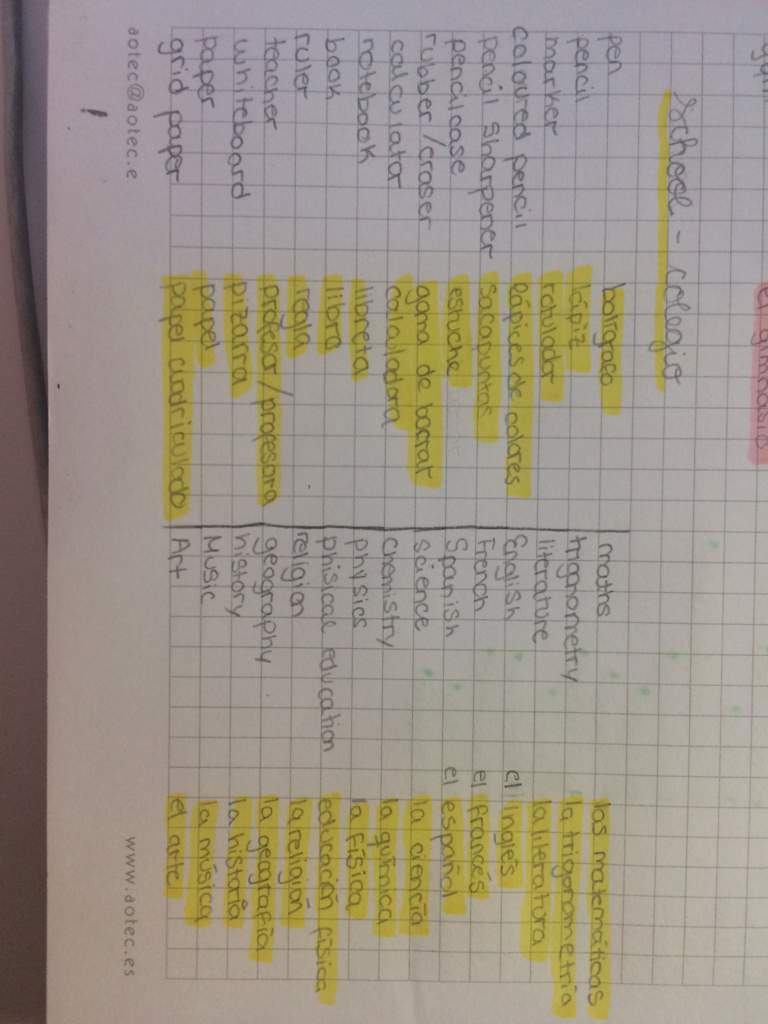 gym el gimnasio
School - colegio
pen bolígrafo maths las matemáticas
pencil lápiz trigonometry la trigonometría
marker rotulador literature la literatura
coloured pencil lápices de colores English el inglés
pencil sharpener sacapuntas French el francés
pencilcase estuche Spanish el español
rubber/eraser goma de borrar science la ciencia
calculator calculadora chemistry la química
notebook libreta physics la física
book libro phisical education educación física
ruler regla religion la religión
teacher profesor/profesora geography la geografía
whiteboard pizarra history la historia
paper papel Music la música
grid paper papel cuadriculado Art el arte
aotec@aotec.e www.aotec.es